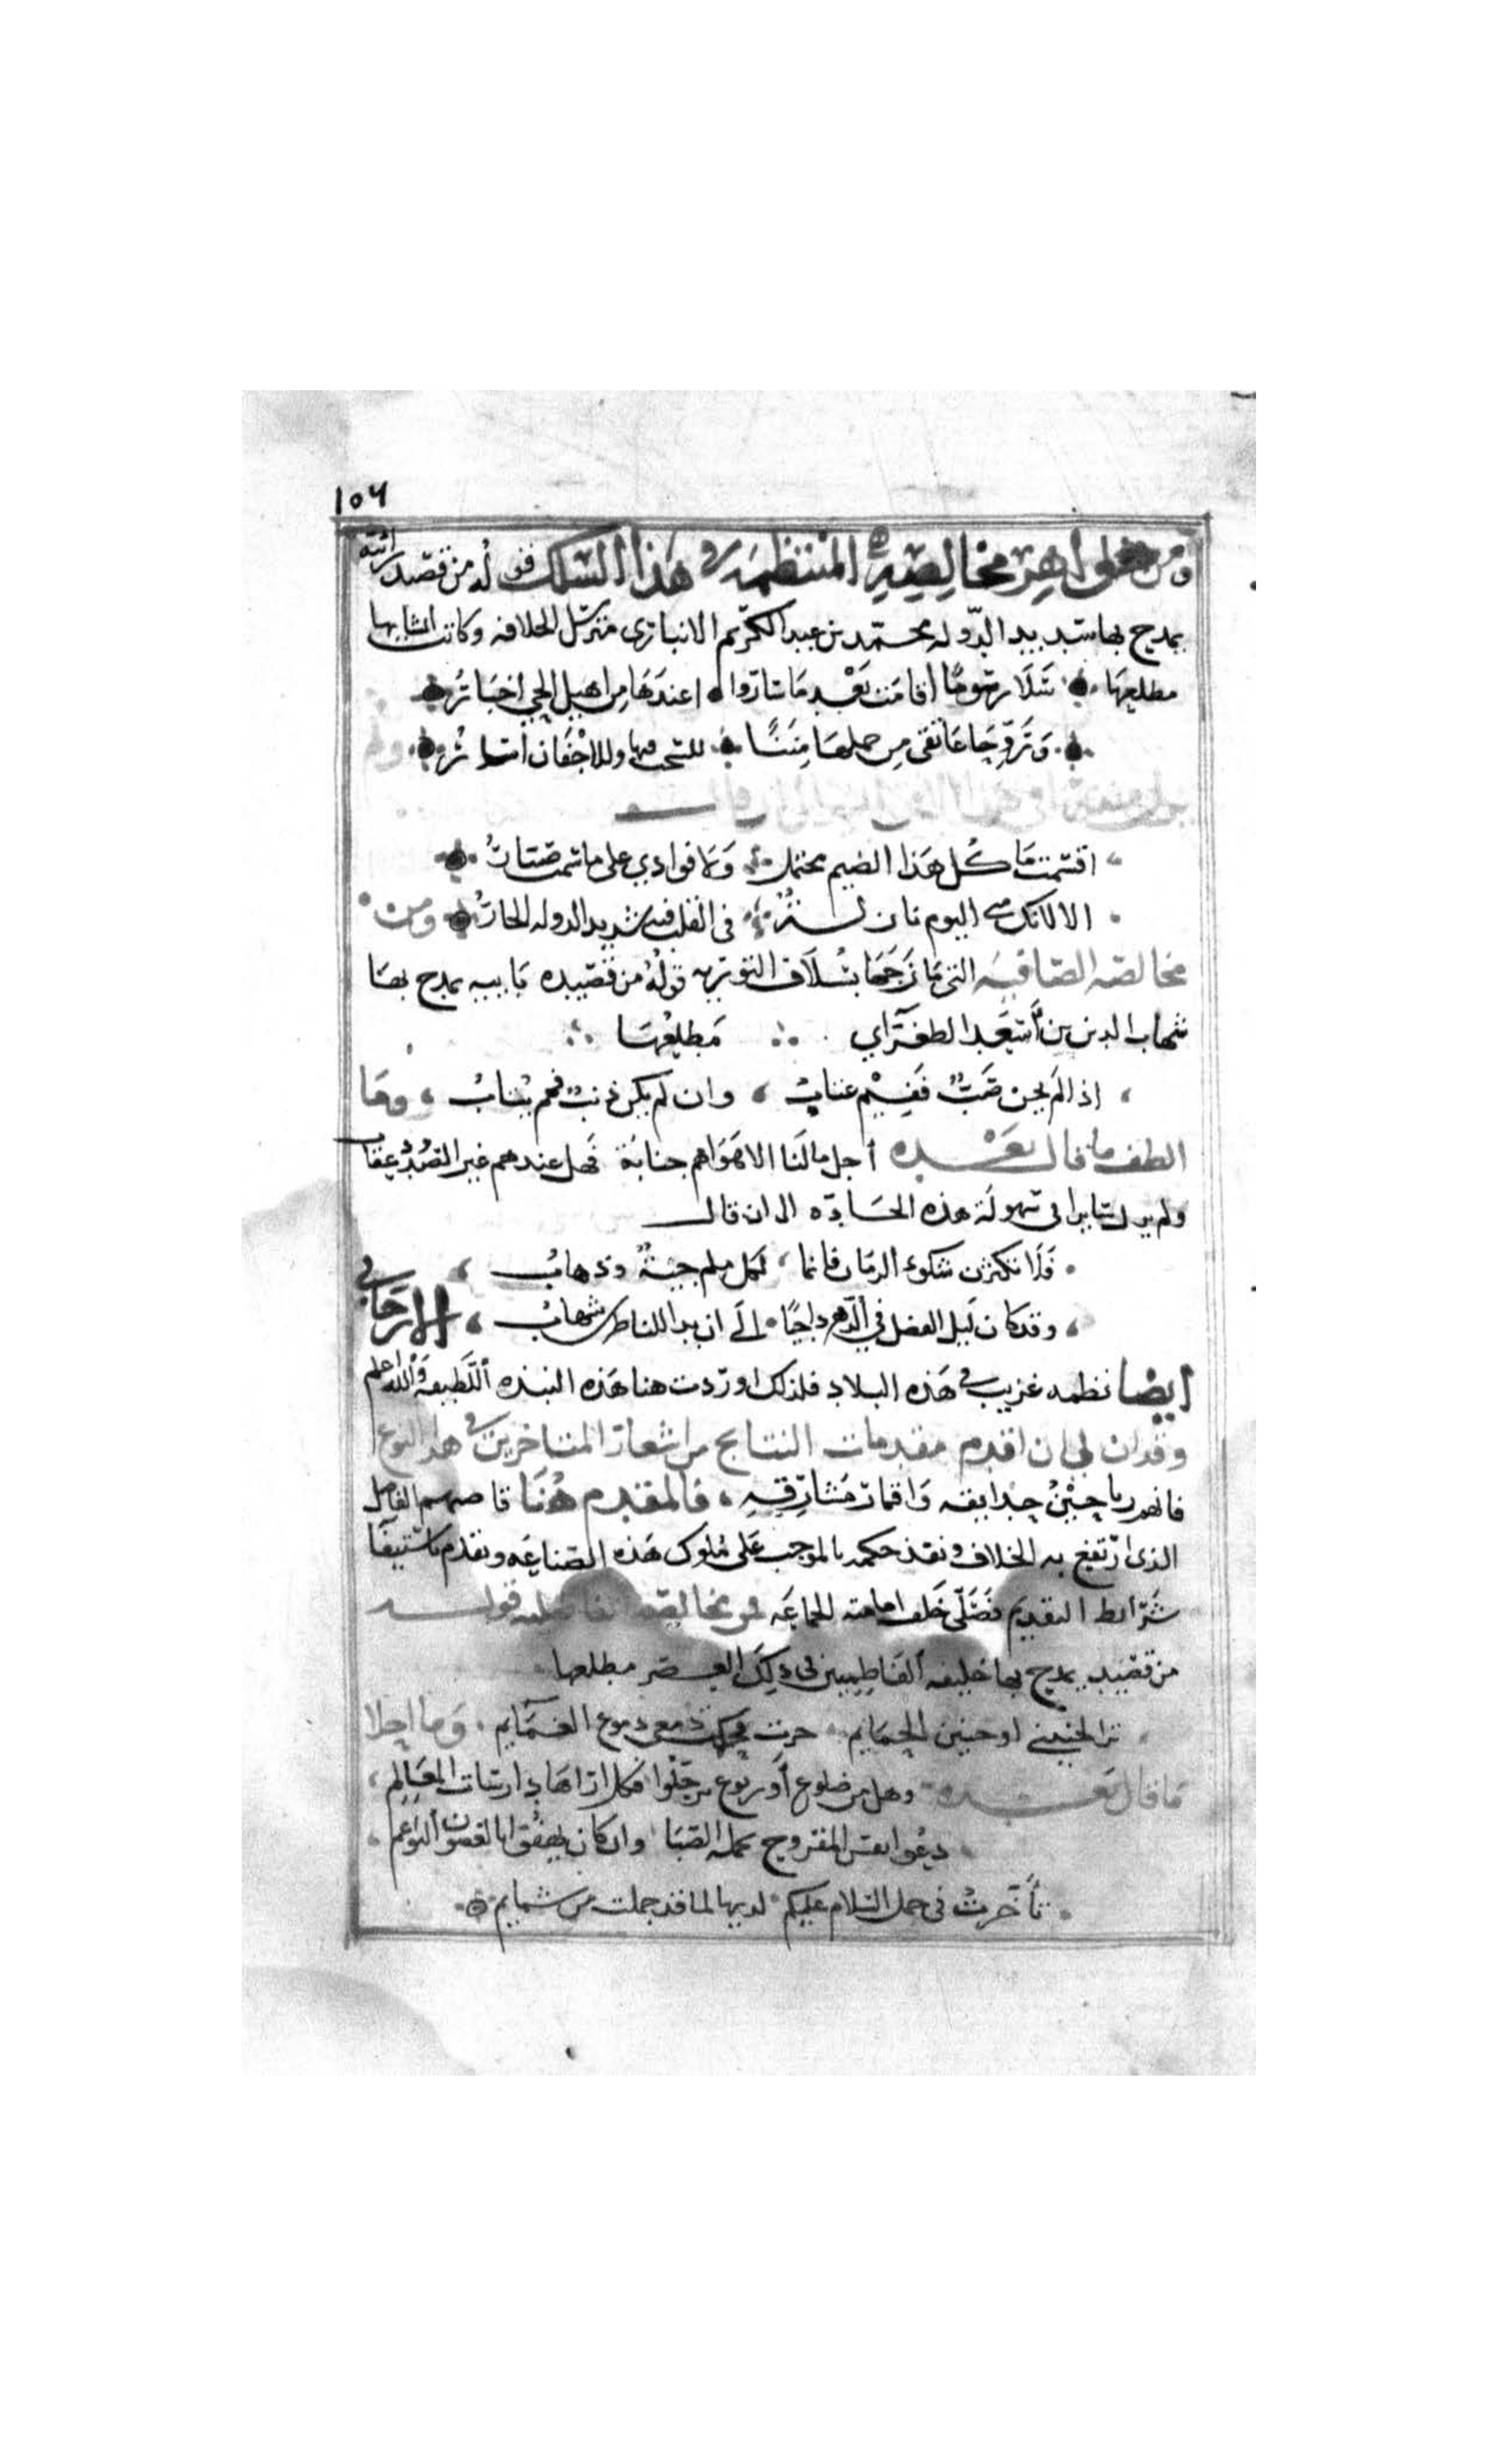 ١٥٦
ومن جواهر مخالصه المنتظمه في هذا السلك قوله من قصيد رائية
يمدح بها سديد الدوله محمد بن عبد الكريم الانباري مترسل الخلافه وكاتب انشايها
مطلعها سلا رسوما اقامت بعد ما ساروا اعندها من اهيل الحي اخبار
وروحا عاتقي من حملها مننا للسحب فيها وللاجفان امطار ولم
اقسمت ما كل هذا الضيم محتمل ولا فوادي على ما سمت صبار
الا لانك مني اليوم نازلة في القلب حيث سديد الدوله الجار ومن
مخالصه الصافيه التي مازجها بسلاف التوريه قوله من قصيده بابيه يمدح بها
شهاب الدين بن أسعد الطغراي مطلعها
اذا لم يخن صب ففيم عتاب وان لم يكن ذنب فمم يتاب وما
الطف ما قال بعده أجل ما لنا الا هواهم جنابة فهل عندهم غير الصدود عقاب
ولم يزل سايرا في سهولة هذه الجاده الى ان قال
فلا تكثرن شكوى الزمان فانما لكل ملم جيئة وذهاب
وقد كان ليل الفضل في الدهر داجيا الى ان بدا للناظرين شهاب الارجاني
ايضا نظمه غريب في هذه البلاد فلذلك اوردت هنا هذه النبذه اللطيفه والله اعلم
وقد ان لي ان اقدم مقدمات النتايج من اشعار المتاخرين في هذا النوع
فانهم رياحين حدايقه واقمار مشارقه فالمقدم هنا قاضيهم الفاضل
الذي ارتفع به الخلاف ونفذ حكمه بالموجب على ملوك هذه الصناعه وتقدم باستيفا
شرايط التقديم فصلى خلف امامته الجماعه فمن مخالصه الفاضليه قوله
من قصيد يمدح بها خليفه الفاطميين في ذلك العصر مطلعها
ترى لحنيني او حنين الحمايم جرت فحكت دمعي دموع الغمايم وما احلا
ما قال بعده وهل من ضلوع أو ربوع ترحلوا فكل اراها دارسات المعالم
دعوا نفس المقروح تحمله الصبا وان كان يهفو بالغصون النواعم
تأخرت في حمل السلام عليكم لديها لما قد حملت من سمايم